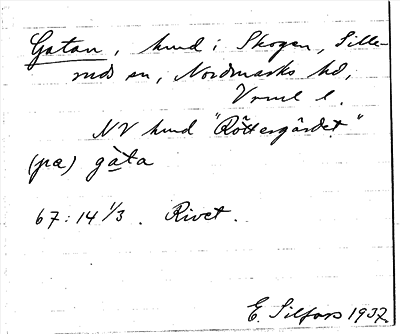 Gatan, hmd i Skogen, Sille-
mds sn, Nordmarks hd,
Vrml l.
NV hmd "Röttergärdet"
(pa) gàta
67:14 1/3. Rivet.
E. Silfors 1932